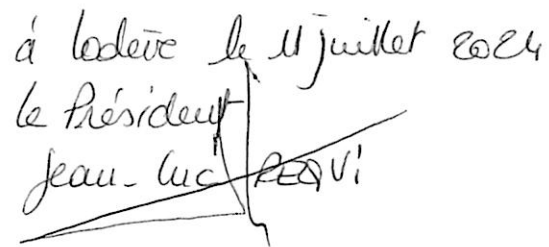 à Lodève le 11 juillet 2024
le Président
Jean-Luc REQUI